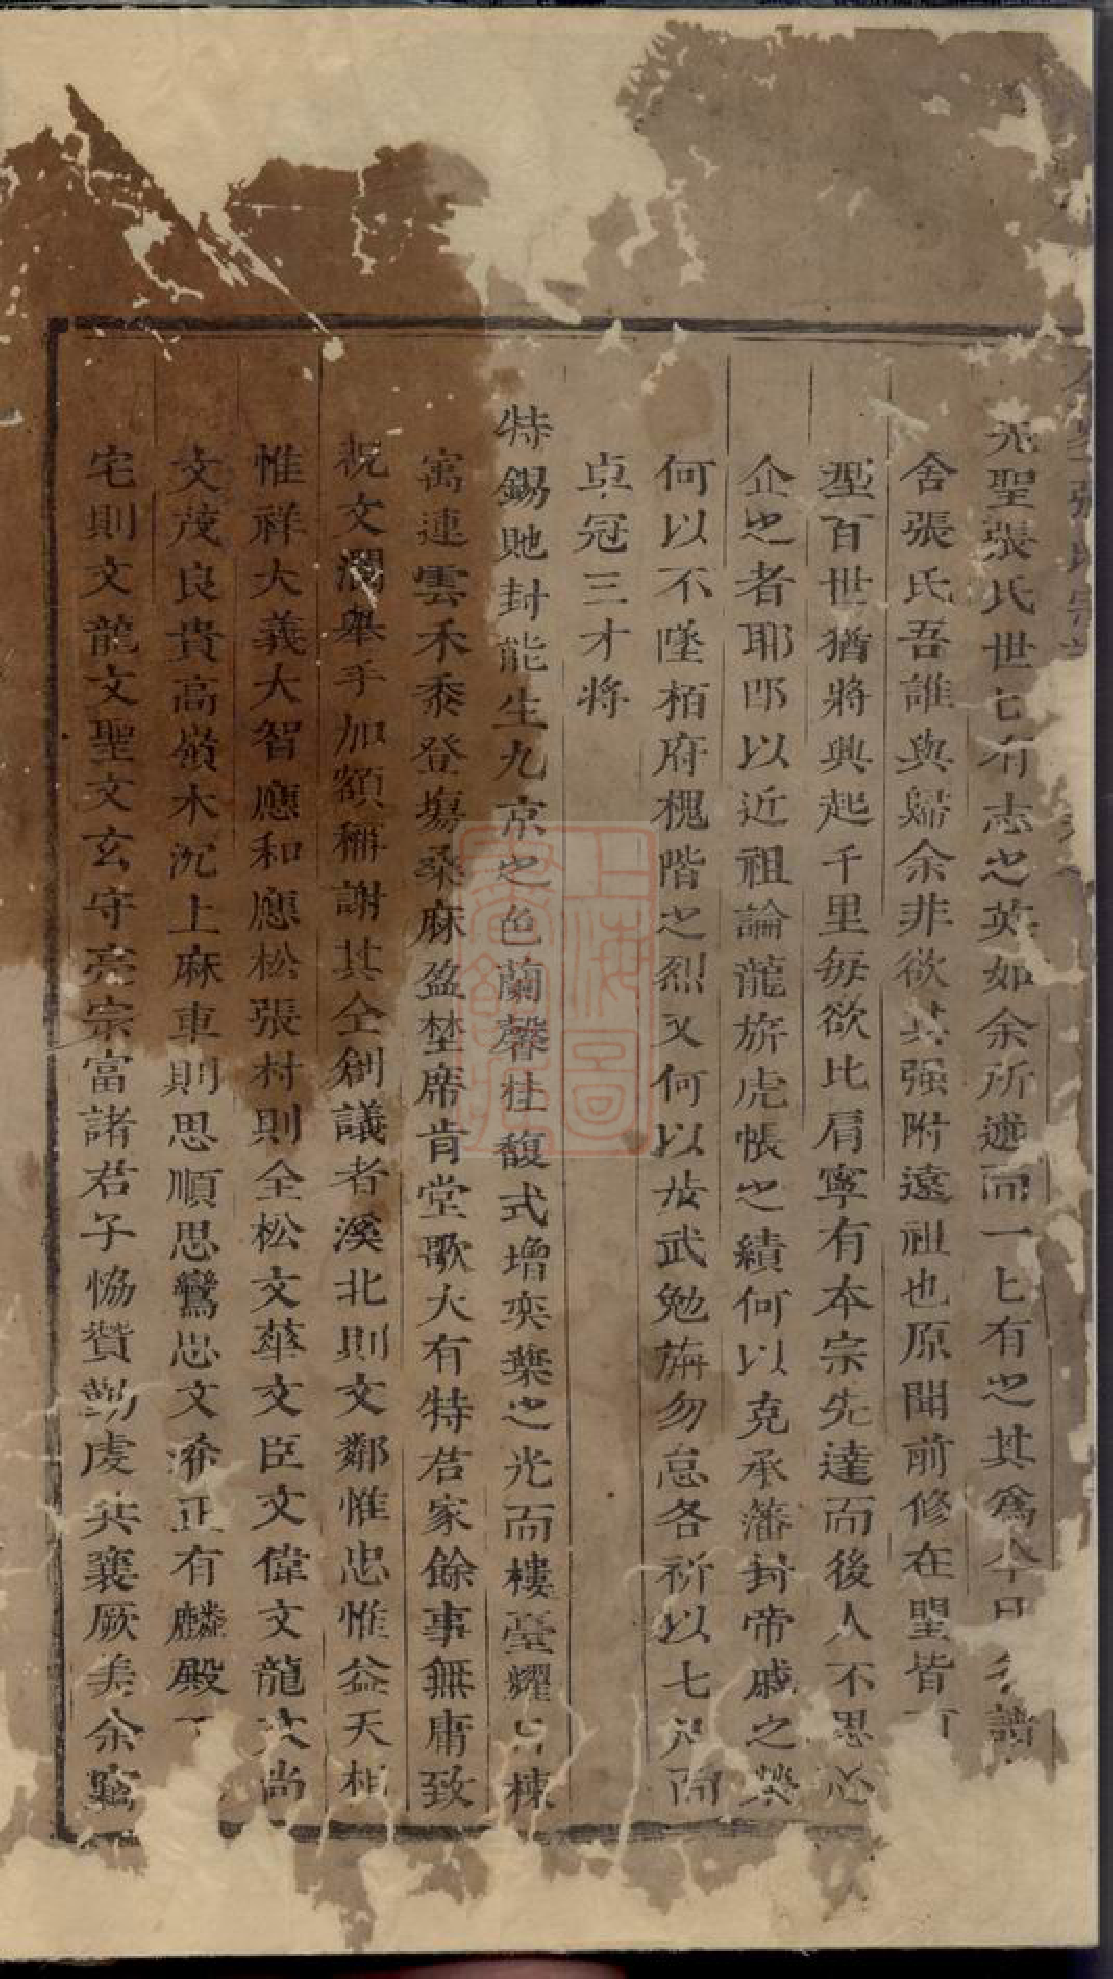 聖張氏世
先聖張氏世亡有志之英如余所述而一匕有之其為今日譜
舍張氏吾誰與歸余非欲其强附遠祖也原聞前修在聖皆可
型百世猶將興起千里每欲比肩寧有本宗先達而後人不思忩
企之者耶即以近祖論龍旂虎帳之績何以克承藩封帝戚之榮
何以不墜栢府槐階之烈又何以故武勉旃勿怠各祈以七尺而
卓冠三才將
特錫貤封能生九京之色蘭馨桂馥式增奕葉之光而樓臺耀日棟
寓連雲禾黍登塲桑麻盈埜席肯堂歌大有特居家餘事無庸致
祝文瀾舉手加額稱謝其仝創議者溪北則文鄰惟忠惟益天相
惟祥大義大智應和應松張村則全松文華文臣文偉文龍文尚
文茂良貴高嶺木沉上麻車則思順思鸞思文添正有麟殿下
宅則文龍文聖文玄守亮宗富諸君子恊贊勤虔共襄厥美余竊
上海圖書館藏